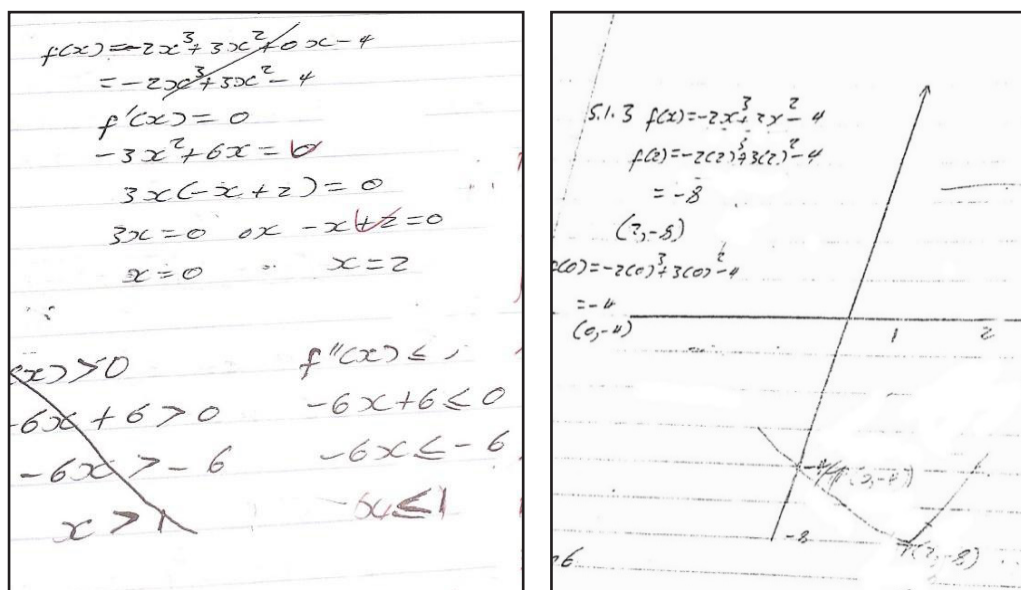 f(x)=-2x³+3x²+0x-4
=-2x³+3x²-4
f'(x)=0
-3x²+6x=0
3x(-x+2)=0
3x=0 ox -x+2=0
x=0 x=2
(x)>0
-6x+6>0
-6x>-6
x>1
f''(x)≤
-6x+6≤0
-6x≤-6
-x≤1
5.1.3 f(x)=-2x³+3x²-4
f(2)=-2(2)³+3(2)²-4
=-8
(2,-8)
(0)=-2(0)³+3(0)²-4
=-4
(0,-4)
1 2
-8
(2,-8)